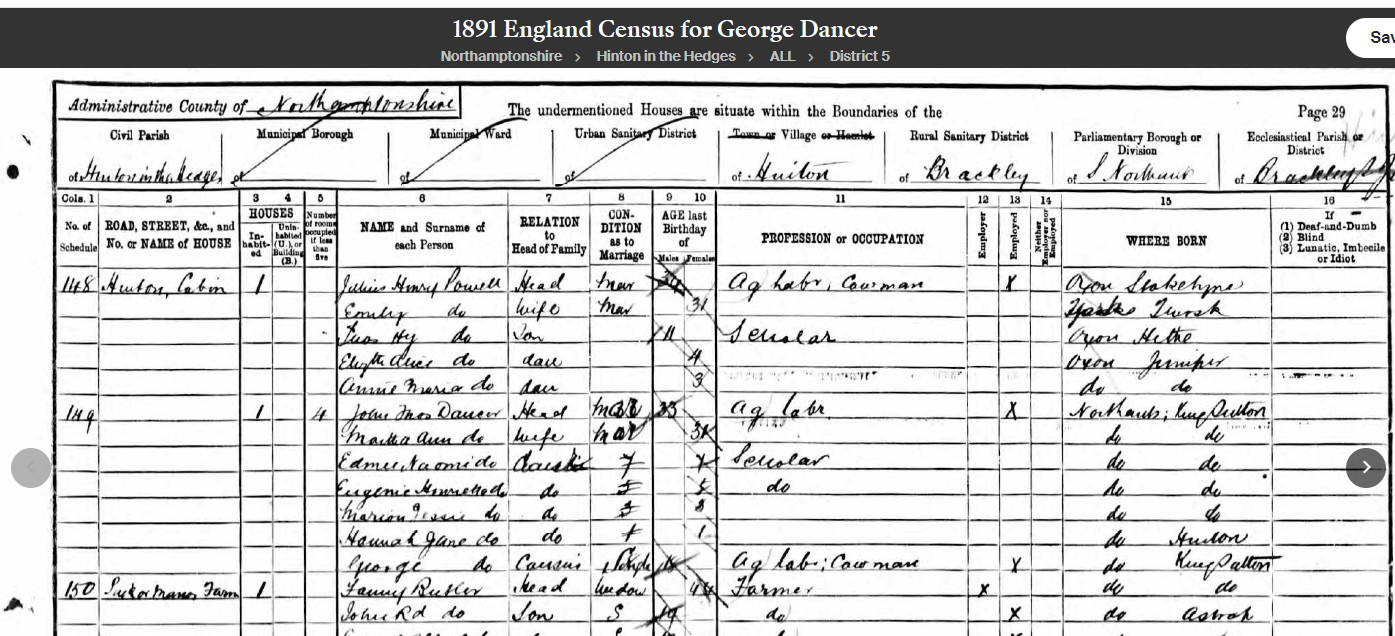 1891 England Census for George Dancer
Sav
Northamptonshire > Hinton in the Hedges > ALL > District 5
Administrative County of Northamptonshire The undermentioned Houses are situate within the Boundaries of the Page 29
Civil Parish Municipal Borough Municipal Ward Urban Sanitary District Town or Village or Hamlet Rural Sanitary District Parliamentary Borough or Division Ecclesiastical Parish or District
of Hinton in the Hedges of of of of Hinton of Brackley of S Northants of Brackley
Cols. 1 2 3 4 5 6 7 8 9 10 11 12 13 14 15 16
No. of Schedule ROAD, STREET, &c., and No. or NAME of HOUSE HOUSES Inhabit-ed Unin-habited (U.), or Building (B.) Number of rooms occupied if less than five NAME and Surname of each Person RELATION to Head of Family CON-DITION as to Marriage AGE last Birthday of Males Females PROFESSION or OCCUPATION Employer Employed Neither Employer nor Employed WHERE BORN If (1) Deaf-and-Dumb (2) Blind (3) Lunatic, Imbecile or Idiot
148 Hinton, Cabin 1 Julius Henry Powell Head Mar Ag labr, Cowman X Oxon
Emily do wife Mar 31
Thos Hy do Son 11 Scholar Oxon Hethe
Elizth Alice do dau 4 Oxon Juniper
Annie Maria do dau 3 do do
149 1 4 John Thos Dancer Head Mar 33 Ag labr X Northants; King Sutton
Martha Ann do wife Mar 31 do do
Naomi do 7 7 Scholar do do
Eugenie do do 5 5 do do do
Marion Jessie do do 3 do do
Hannah Jane do do 1 1 do Hinton
George do Cousin Single Ag labr; Cowman X do King Sutton
150 Manor Farm 1 Fanny Butler Head Widow 44 Farmer X do do
John Rd do Son S 19 do X do